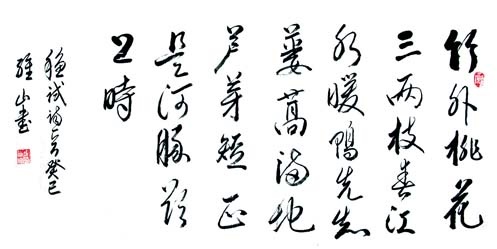 竹外桃花
三两枝春江
水暖鴨先知
蔞蒿满地
芦芽短正
是河豚欲
上時
詩癸巳
山書